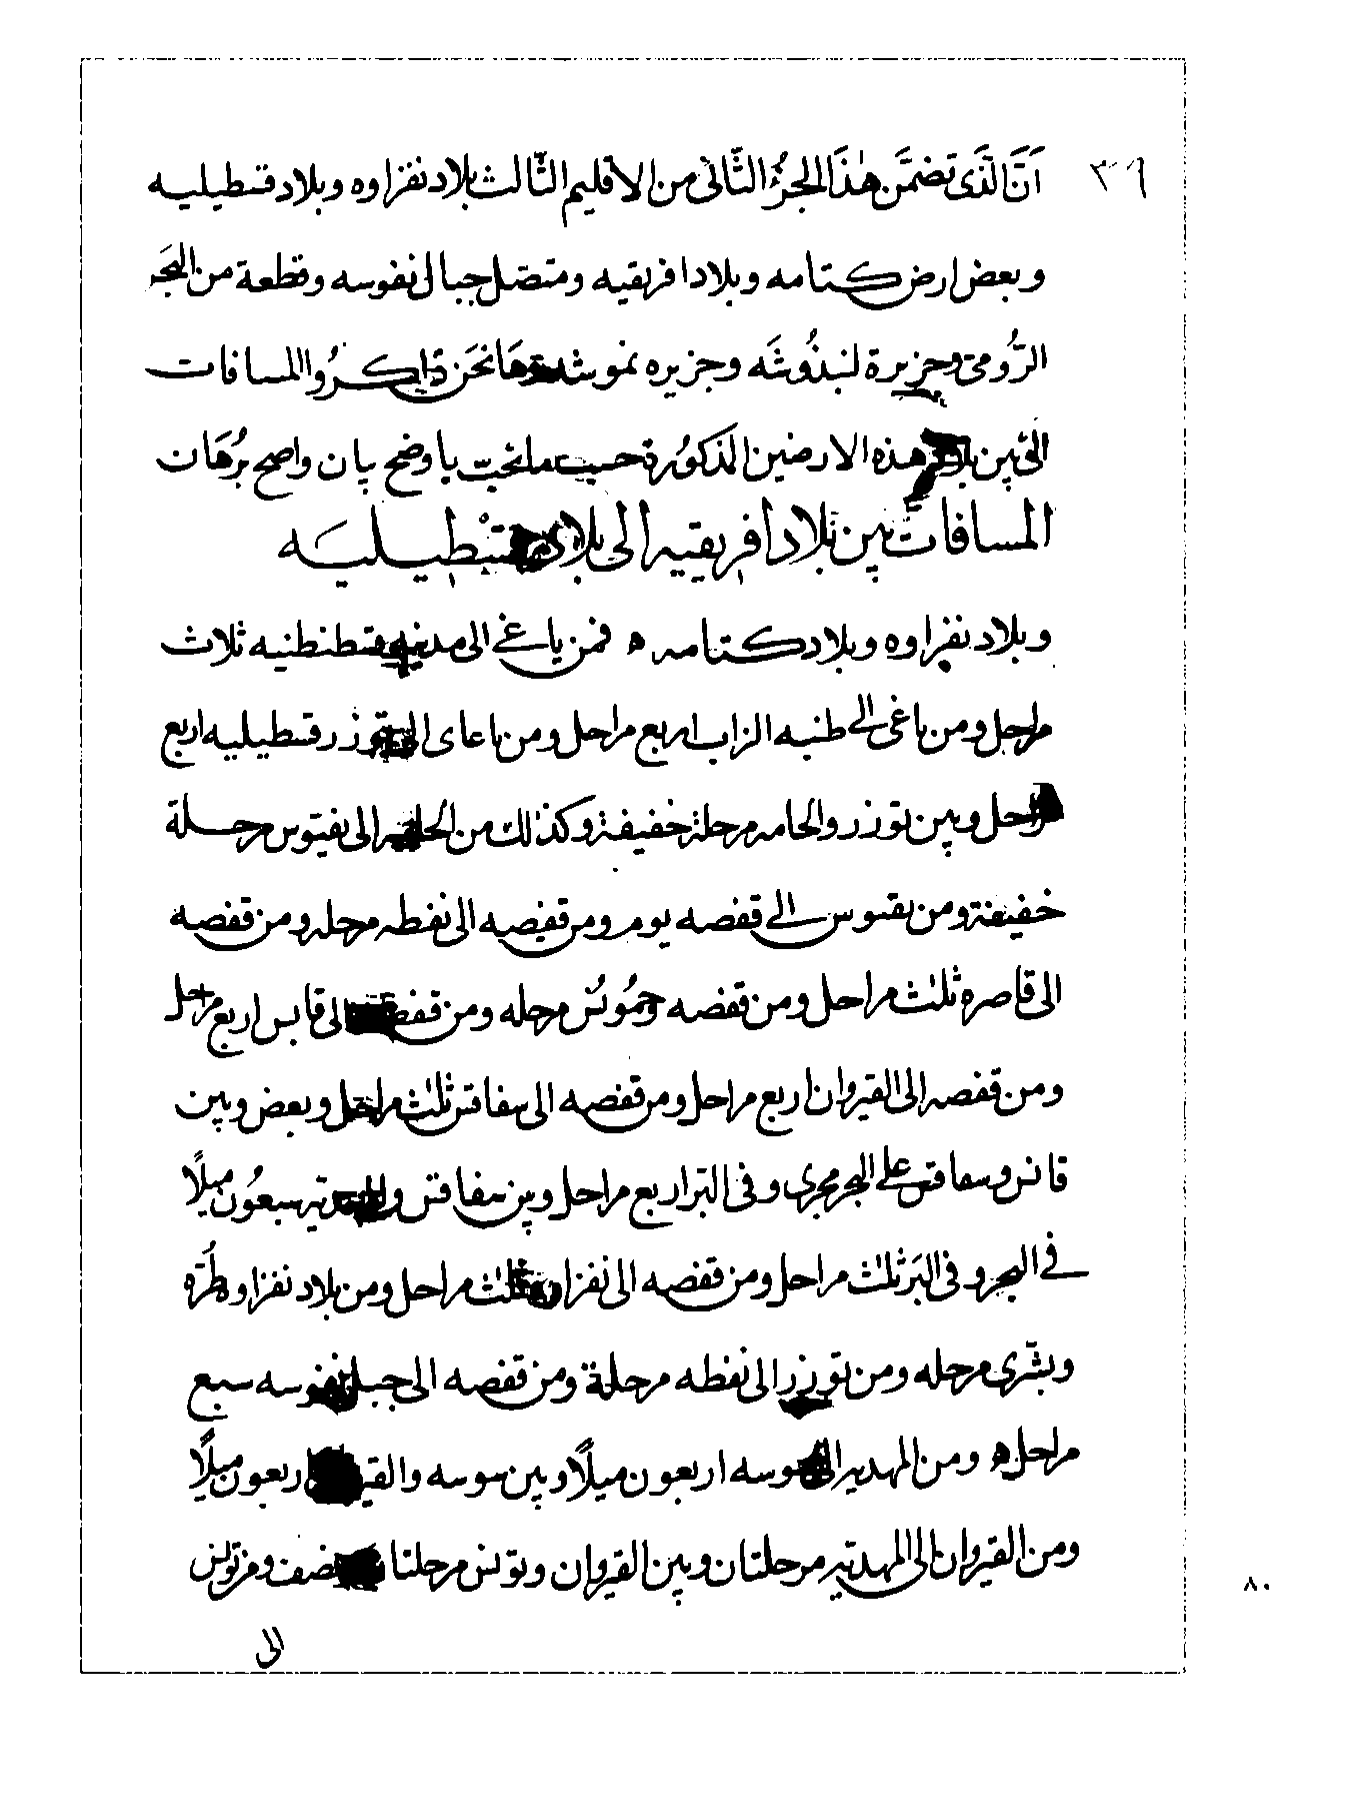 ٣٦
اَنَّ الَّذَى تضمَّن هٰذَا الجزُء الثَّانى من الاقليم الثَّالث بلاد نفزاوه وبلاد قسطيليه
وبعض ارض كتامه وبلاد افريقيه ومتصل جبال نفوسه وقطعة من البَحَر
الرُّومىّ وجزيرة لنبذُوشَه وجزيره نموشه وهَا نحَن ذَاكرُوا المسافات
التى بين بلاد هذه الارضين المذكوُرة حسب ما يجب باوضح بيان واصح برُهَان
المسافات بين بلاد افريقيه الى بلاد قسْطيليَه
وبلاد نفزاوه وبلاد كتامه ه فمن باغى الى مدينه قسطنطنيه ثلاث
مراحل ومن باغى الى طنبه الزاب اربع مراحل ومن باغاى الى توزر قسطيليه اربع
مراحل وبين توزر والحامه مرحلة خفيفة وكذلك من الحامه الى نفيوس مرحلة
خفيفة ومن نقيوس الى قفصه يوم ومن قفصه الى نفطه مرحله ومن قفصه
الى قاصره ثلٰث مراحل ومن قفصه وجمُوُنس مرحله ومن قفصه الى قابس اربع مراحل
ومن قفصه الى القيروان اربع مراحل ومن قفصه الى سفاقس ثلٰث مراحل وبعض وبين
قابس وسفاقس على البحر مجرى وفى البرّ اربع مراحل وبين سفاقس والمهديّه سبعوُن ميلًا
فى البحر وفى البَر ثلٰث مراحل ومن قفصه الى نفزاوه ثلٰث مراحل ومن بلاد نفزاوه طُرّه
وبشّرى مرحله ومن توزر الى نفطه مرحلة ومن قفصه الى جبل نفوسه سبع
مراحل ه ومن المهديه الى سوسه اربعون ميلًا وبين سوسه والقيروان اربعون ميلًا
ومن القيروان الى المهديّه مرحلتان وبين القيروان وتونس مرحلتان ونصف ومن تونس
الى
٨٠